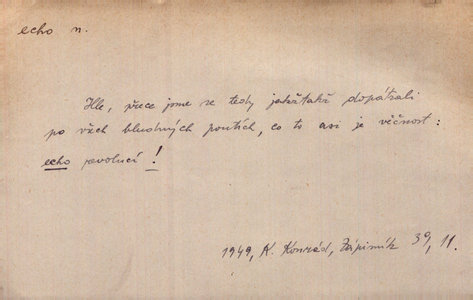 echo n.
Hle, přece jsme se tedy jakžtakž dopátrali
po všech bludných poutích, co to asi je věčnost:
echo revolucí!
1949, K. Konrád, Zápisník 39, 11.